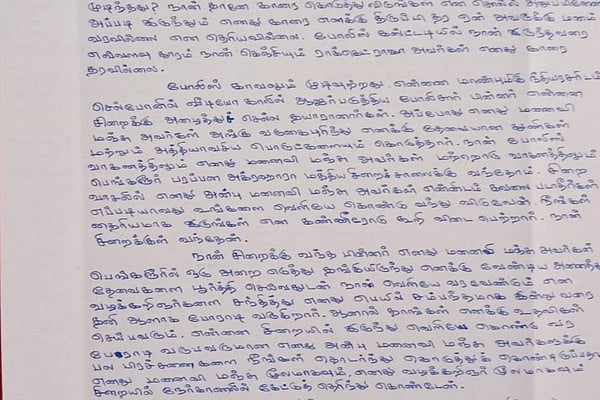 முடிந்தது? நான் தானே காரை கொடுத்துவிடுங்கள் என சொல்லி அனுப்பினேன்
அப்படி இருந்தும் எனது காரை எனக்கு திருப்பி தர ஏன் அவருக்கு மனம்
வரவில்லை என தெரியவில்லை. போலிஸ் கஸ்ட்டடியில் நான் இருந்தவரை
எவ்வளவு தூரம் நான் கெஞ்சியும் ராக்கெட்ராஜா அவர்கள் எனது காரை
தரவில்லை.
போலிஸ் காவலும் முடிவுற்றது. என்னை மாண்புமிகு நீதியரசரிடம்
செல்போனில் வீடியோ காலில் ஆஜர்படுத்திய போலிசார் பின்னர் என்னை
சிறைக்கு அழைத்துச் செல்ல தயாரானார்கள். அப்போது எனது மனைவி
மஞ்சு அவர்கள் அங்கு வருகைபுரிந்து எனக்கு தேவையான துணிகள்
மற்றும் அத்தியாவசிய பொருட்களையும் கொடுத்தார். நான் போலிஸ்
வாகனத்திலும் எனது மனைவி மஞ்சு அவர்கள் மற்றொரு வாகனத்திலும்
பெங்களூர் பரப்பன அக்ரஹாரா மத்திய சிறைச்சாலைக்கு வந்தோம். சிறை
வாசலில் எனது அன்பு மனைவி மஞ்சு அவர்கள் என்னிடம் கவலை படாதீர்கள்
எப்படியாவது உங்களை வெளியே கொண்டு வந்து விடுவேன். நீங்கள்
தைரியமாக இருங்கள் என கண்ணீரோடு கூறி விடை பெற்றார். நான்
சிறைக்குள் வந்தேன்.
நான் சிறைக்கு வந்த பின்னர் எனது மனைவி மஞ்சு அவர்கள்
பெங்களூரில் ஒரு அறை எடுத்து தங்கியிருந்து எனக்கு வேண்டிய அனைத்து
தேவைகளை பூர்த்தி செய்வதுடன் நான் வெளியே வரவேண்டும் என
வழக்கறிஞர்களை சந்தித்து எனது பெயில் சம்பந்தமாக இன்று வரை
தனி ஆளாக போராடி வருகிறார். ஆனால் தாங்கள் எனக்கு உதவிகள்
செய்பவரும், என்னை சிறையில் இருந்து வெளியே கொண்டு வர
போராடி வருபவருமான எனது அன்பு மனைவி மஞ்சு அவர்களுக்கு
பல பிரச்சணைகளை நீங்கள் தொடர்ந்து கொடுத்துக் கொண்டிருப்பதாக
எனது மனைவி மஞ்சு மூலமாகவும், எனது வழக்கறிஞர் மூலமாகவும்
சிறையில் நேர்காணலில் கேட்டுத் தெரிந்து கொண்டேன்.